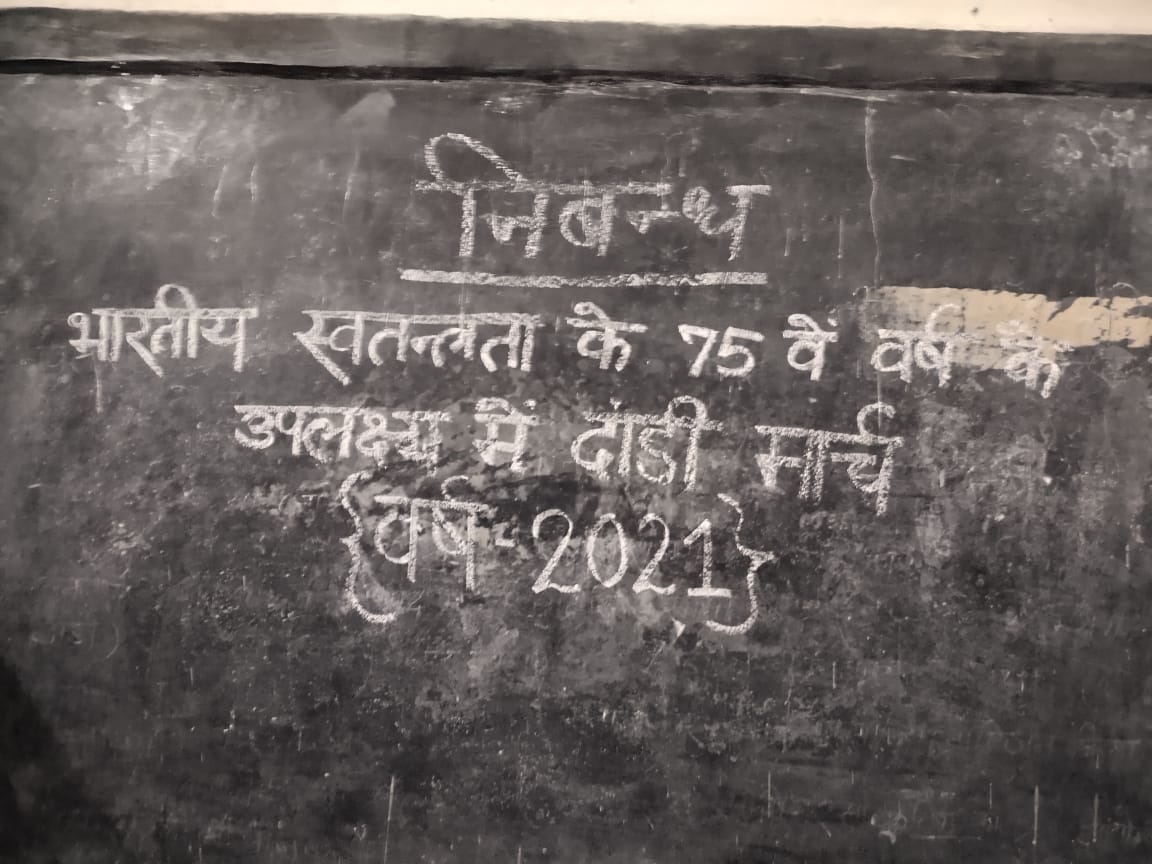 निबन्ध
भारतीय स्वतन्त्रता के 75 वें वर्ष के
उपलक्ष्य में दांडी मार्च
{वर्ष-2021}